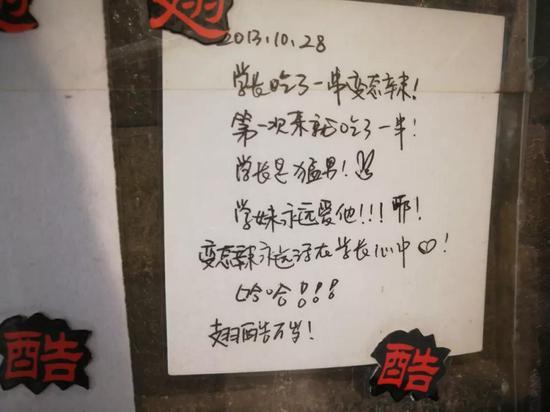 翅
2013.10.28
学长吃了一串变态辣!
第一次来就吃了一半!
学长是猛男!
学妹永远爱他!!!耶!
变态辣永远活在学长心中♡!
哈哈!!!
翅酷万岁!
酷
酷